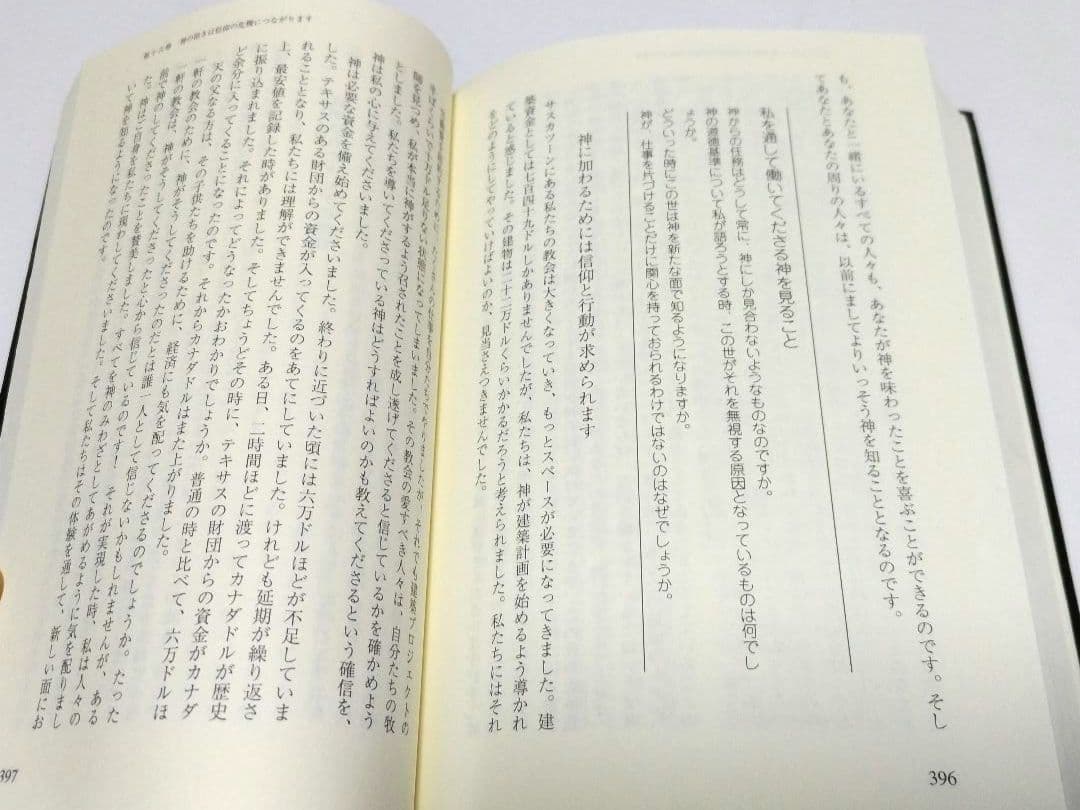 も、あなたと一緒にいるすべての人々も、あなたが神を味わったことを喜ぶことができるのです。そし
てあなたとあなたの周りの人々は、以前にましてよりいっそう神を知ることとなるのです。
私を通して働いてくださる神を見ること
神からの任務はどうして常に、神にしか見合わないようなものなのですか。
神の道徳基準について私が語ろうとする時、この世がそれを無視する原因となっているものは何でし
ょうか。
どういった時にこの世は神を新たな面で知るようになりますか。
神が、仕事を片づけることだけに関心を持っておられるわけではないのはなぜでしょうか。
神に加わるためには信仰と行動が求められます
サスカツーンにある私たちの教会は大きくなっていき、もっとスペースが必要になってきました。建
築資金としては七百四十九ドルしかありませんでしたが、私たちは、神が建築計画を始めるよう導かれ
ていると感じました。その建物は二十二万ドルくらいかかるだろうと考えられました。私たちにはそれ
をどのようにしてやっていけばよいのか、見当さえつきませんでした。
396
第十六章 神の招きは信仰の危機につながります
仕事を自分たちでやりましたが、それでも建築プロジェクトの
半ばぐらいで十万ドル足りない状態になってしまいました。その教会の愛すべき人々は、自分たちの牧
師を見つめ、私が本当に神がするよう召されたことを成し遂げてくださると信じているかを確かめよう
としました。私たちを導いてくださっている神はどうすればよいのかも教えてくださるという確信を、
神は私の心に与えてくださいました。
神は必要な資金を備え始めてくださいました。終わりに近づいた頃には六万ドルほどが不足していま
した。テキサスのある財団からの資金が入ってくるのをあてにしていました。けれども延期が繰り返さ
れることとなり、私たちには理解ができませんでした。ある日、二時間ほどに渡ってカナダドルが歴史
上、最安値を記録した時がありました。そしてちょうどその時に、テキサスの財団からの資金がカナダ
に振り込まれました。それによってどうなったかおわかりでしょうか。普通の時と比べて、六万ドルほ
ど余分に入ってくることになったのです。それからカナダドルはまた上がりました。
天の父なる方は、その子供たちを助けるために、経済にも気を配ってくださるのでしょうか。たった
一軒の教会のために、神がそうしてくださったのだとは誰一人として信じないかもしれませんが、ある
一軒の教会は、神がそうしてくださったと心から信じているのです! それが実現した時、私は人々の
前で神のしてくださったことを賛美しました。すべてを神のみわざとしてあがめるように気を配りまし
た。神はご自身を私たちに現わしてくださいました。そして私たちはその体験を通して、新しい面にお
いて神を知るようになったのです。
397